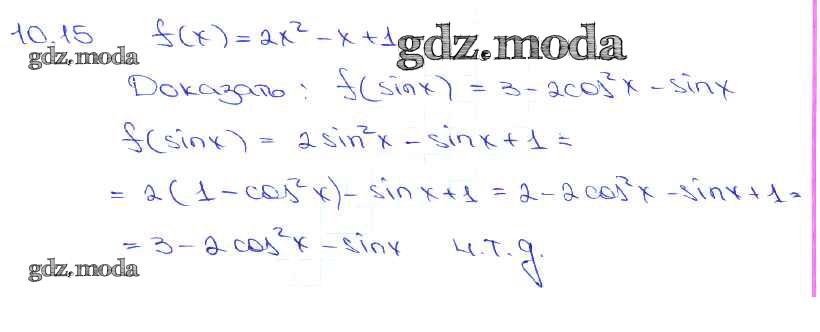 10.15 f(x) = 2x² - x + 1 gdz.moda
gdz.moda
Доказать: f(sinx) = 3 - 2cos²x - sinx
f(sinx) = 2sin²x - sinx + 1 =
= 2(1 - cos²x) - sinx + 1 = 2 - 2cos²x - sinx + 1 =
= 3 - 2cos²x - sinx ч.т.д.
gdz.moda